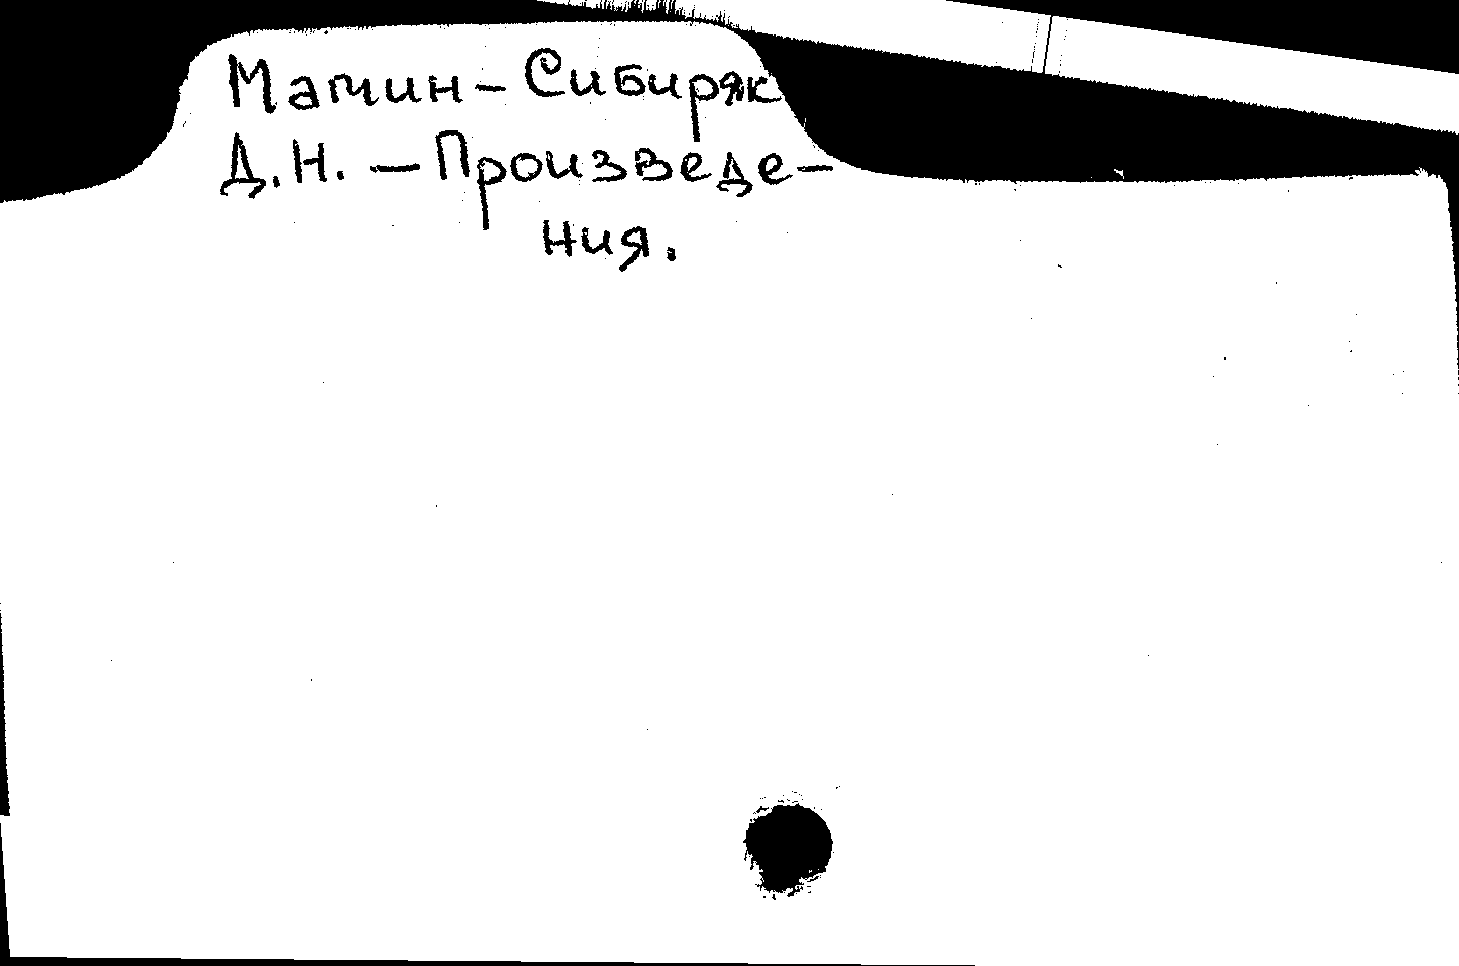 Мамин-Сибиряк
Д.Н. - Произведе-
ния.